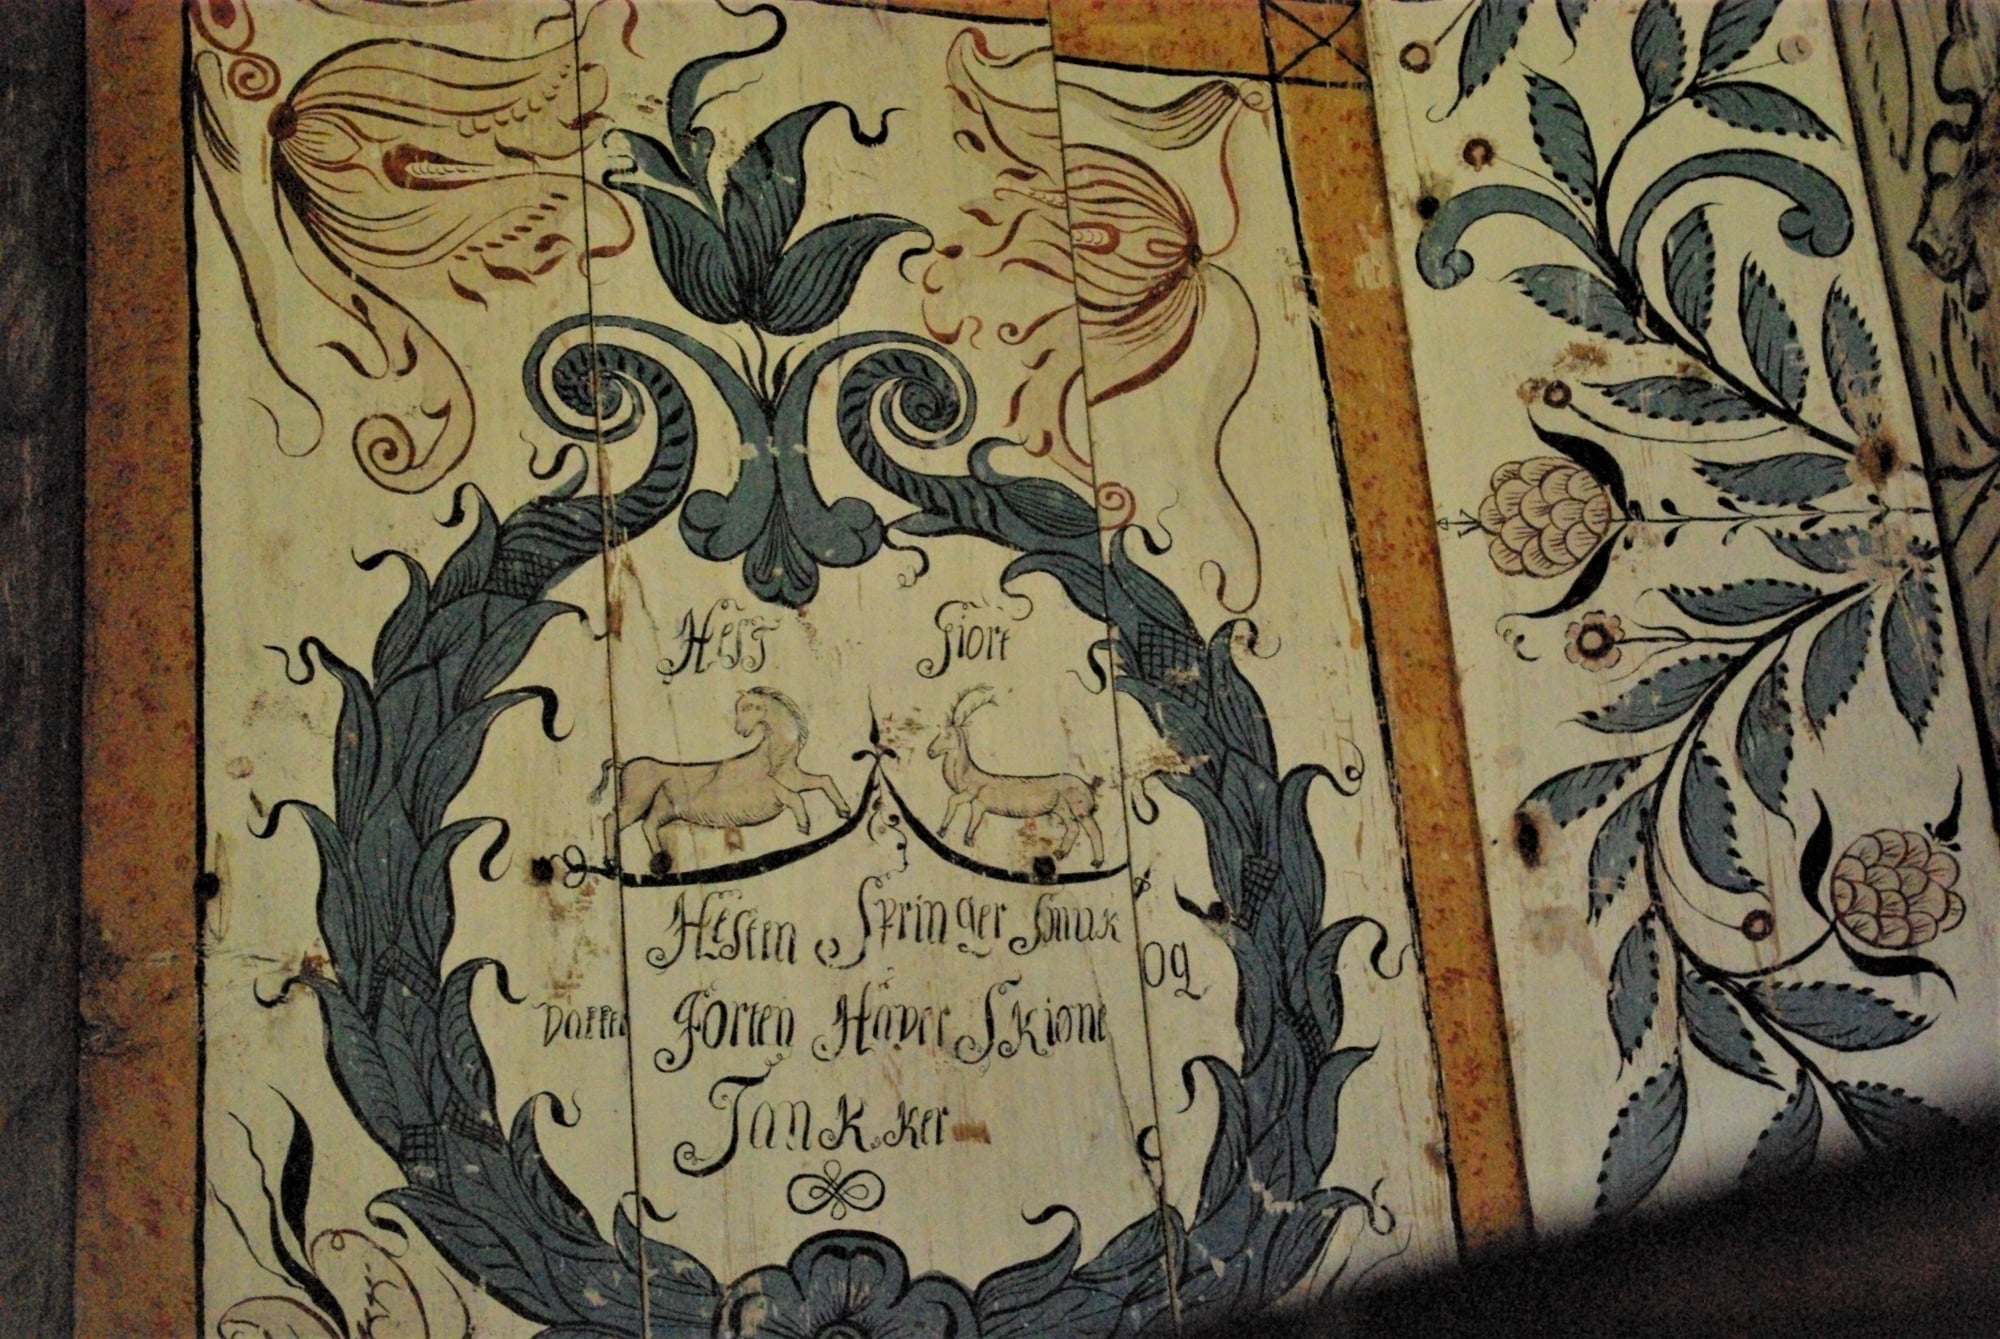 Hest Giort
Hesten Springer Smuk og
Dapper Giorten Haver Skiøne
Tankker